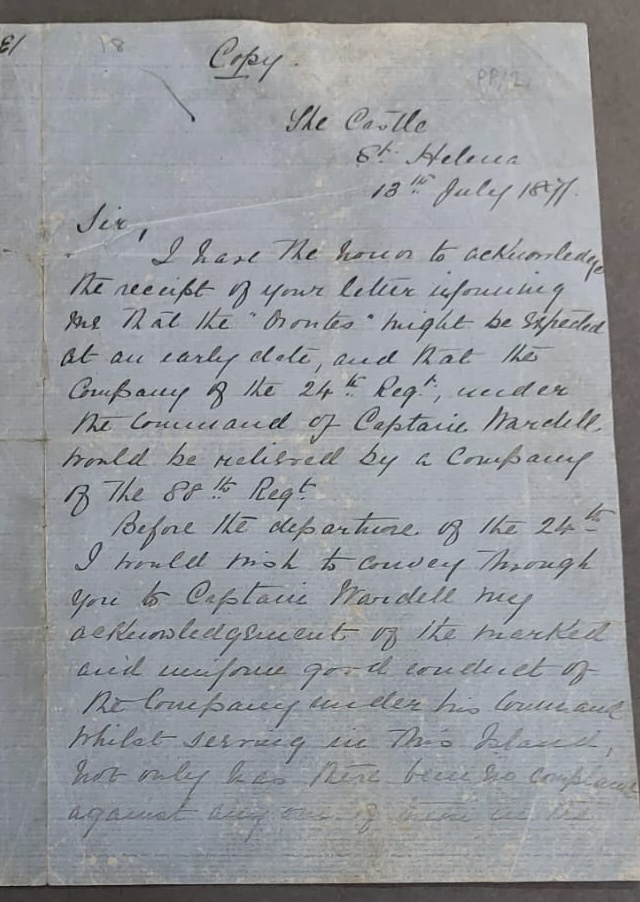 18
Copy.
PP/2
The Castle
St. Helena
13th July 1877.
Sir,
I have the honor to acknowledge
the receipt of your letter informing
me that the "Orontes" might be expected
at an early date, and that the
Company of the 24th Regt, under
the Command of Captain Wardell
would be relieved by a Company
of the 88th Regt.
Before the departure of the 24th
I would wish to convey through
you to Captain Wardell my
acknowledgement of the marked
and uniform good conduct of
the Company under his Command
whilst serving in this Island,
not only has there been no complaint
against any one of them in the